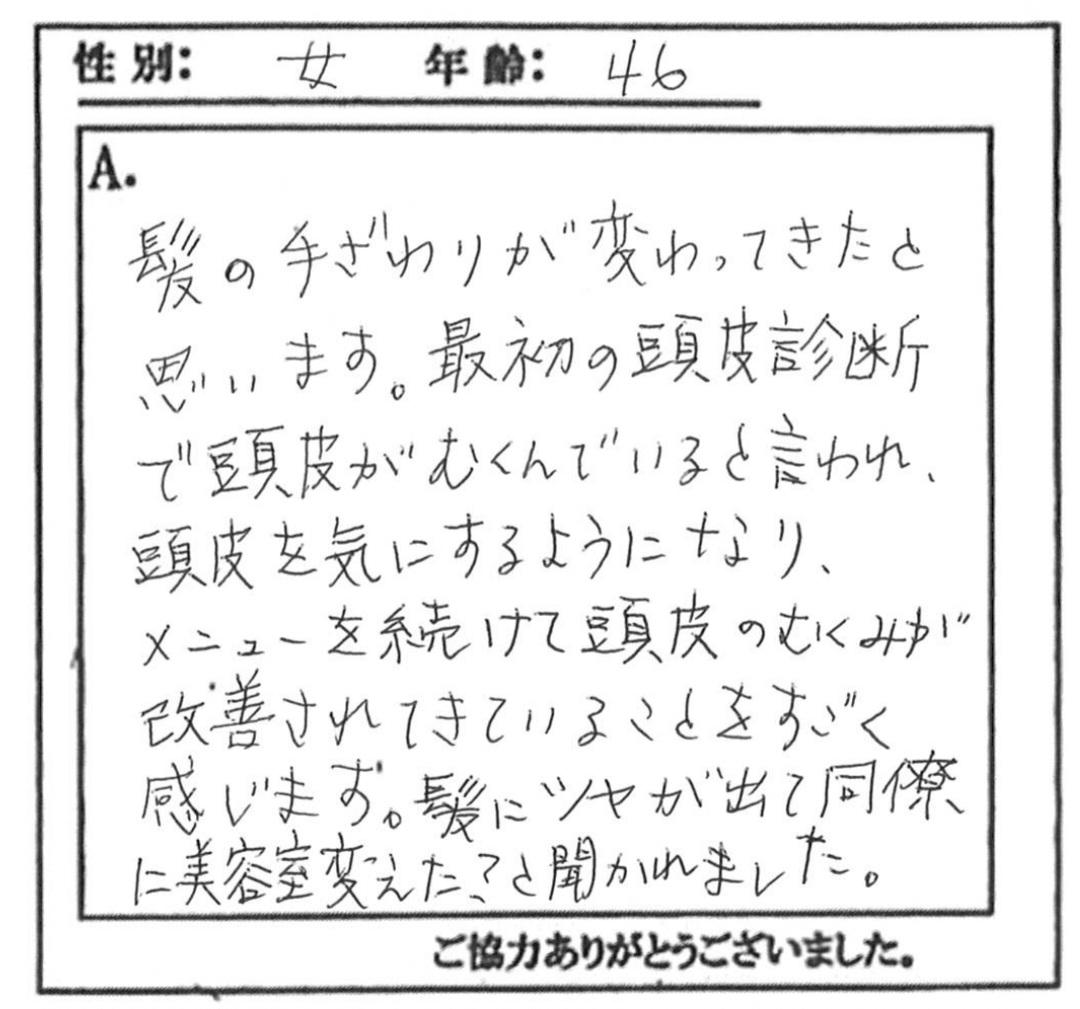 性別： 女 年齢： 46
A.
髪の手ざわりが変わってきたと
思います。最初の頭皮診断
で頭皮がむくんでいると言われ、
頭皮を気にするようになり、
メニューを続けて頭皮のむくみが
改善されてきていることをすごく
感じます。髪にツヤが出て同僚
に美容室変えた？と聞かれました。
ご協力ありがとうございました。